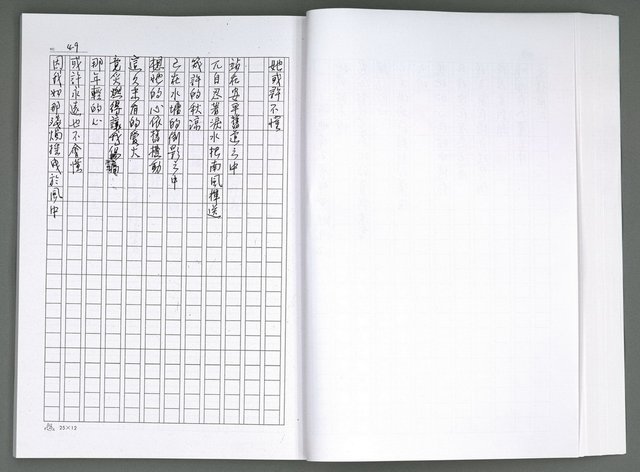 49
她或許不懂
站在安平舊道之中
兀自忍著淚水把南風揮送
幾許的秋涼
已在水塘的倒影之中
想她的心依舊擺動
這久未有的愛火
竟燃得讓我傷痛
那年輕的心
或許永遠也不會懂
因我如那殘燭搖曳於風中
25×12